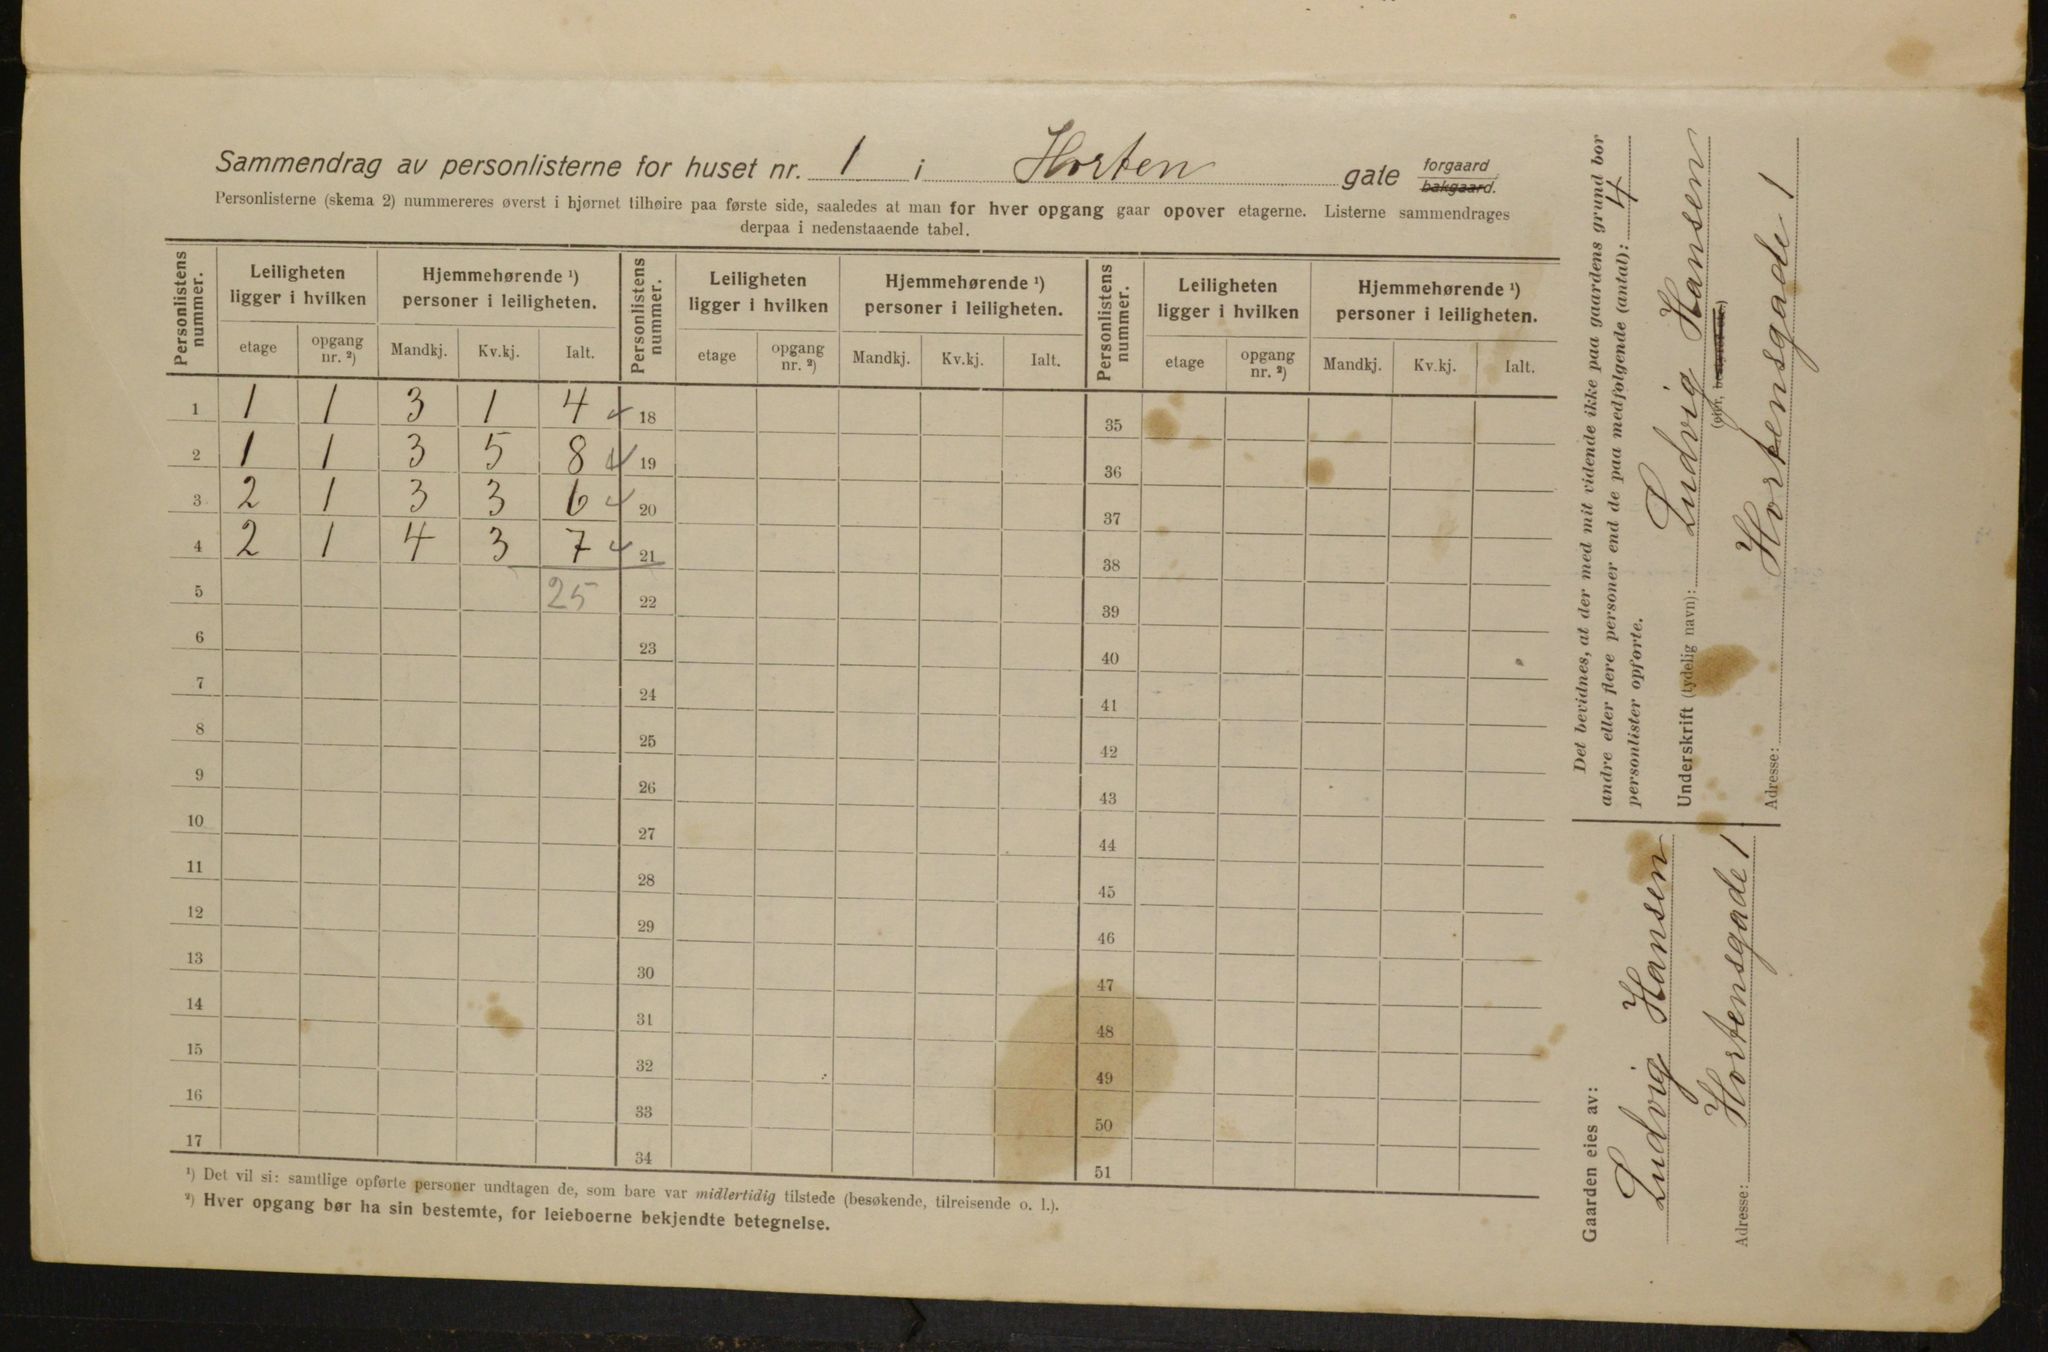 Sammendrag av personlisterne for huset nr. 1 i Horten gate forgaard bakgaard.
Personlisterne (skema 2) nummereres øverst i hjørnet tilhøire paa første side, saaledes at man for hver opgang gaar opover etagerne. Listerne sammendrages
derpaa i nedenstaaende tabel.
Personlistens nummer. Leiligheten ligger i hvilken Hjemmehørende ¹) personer i leiligheten. Personlistens nummer. Leiligheten ligger i hvilken Hjemmehørende ¹) personer i leiligheten. Personlistens nummer. Leiligheten ligger i hvilken Hjemmehørende ¹) personer i leiligheten.
etage opgang nr. ²) Mandkj. Kv.kj. Ialt. etage opgang nr. ²) Mandkj. Kv.kj. Ialt. etage opgang nr. ²) Mandkj. Kv.kj. Ialt.
1 1 1 3 1 4 18 35
2 1 1 3 5 8 19 36
3 2 1 3 3 6 20 37
4 2 1 4 3 7 21 38
5 25 22 39
6 23 40
7 24 41
8 25 42
9 26 43
10 27 44
11 28 45
12 29 46
13 30 47
14 31 48
15 32 49
16 33 50
17 34 51
¹) Det vil si: samtlige opførte personer undtagen de, som bare var midlertidig tilstede (besøkende, tilreisende o. l.).
²) Hver opgang bør ha sin bestemte, for leieboerne bekjendte betegnelse.
Det bevidnes, at der med mit vidende ikke paa gaardens grund bor
andre eller flere personer end de paa medfølgende (antal): 4
personlister opførte.
Underskrift (tydelig navn): Ludvig Hansen
Adresse: Hortensgade 1
Gaarden eies av:
Ludvig Hansen
Adresse: Hortensgade 1